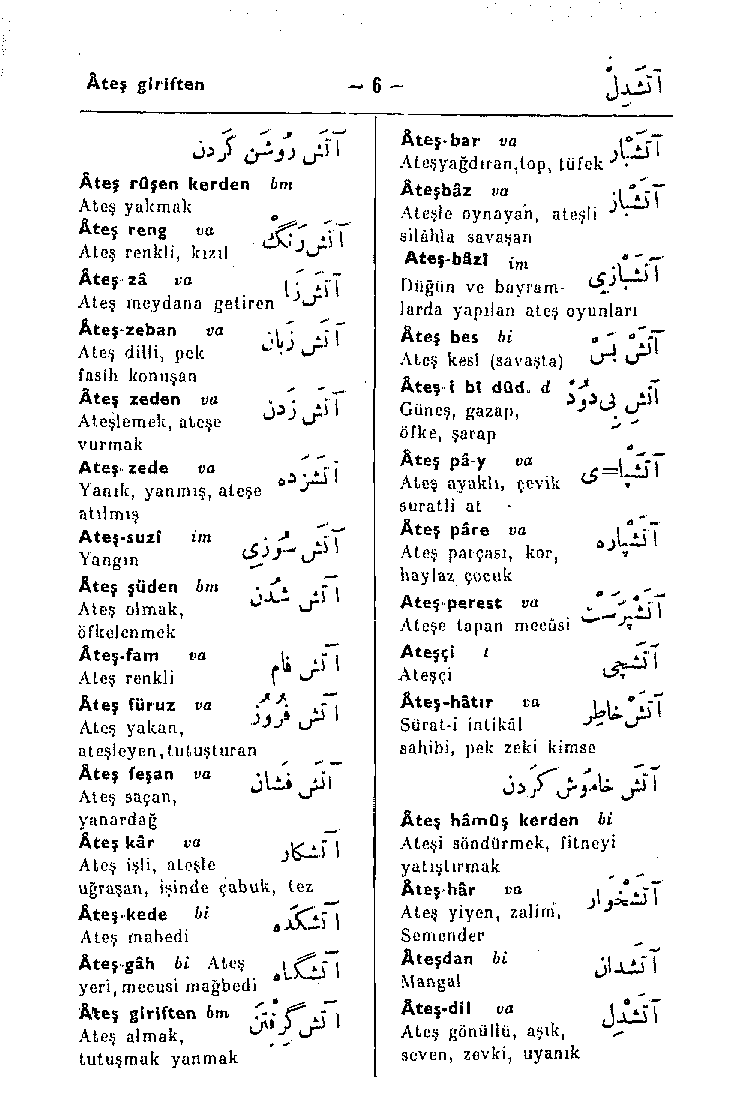 Âteş giriften — 6 — آتشدل
آتش روشن کردن
Âteş rûşen kerden bm
Ateş yakmak
Âteş reng va آتش رنگ
Ateş renkli, kızıl
Âteş-zâ va آتش زا
Ateş meydana getiren
Âteş-zeban va آتش زبان
Ateş dilli, pek
fasih konuşan
Âteş zeden va آتش زدن
Ateşlemek, ateşe
vurmak
Ateş-zede va آتشزده
Yanık, yanmış, ateşe
atılmış
Ateş-suzî im آتش سوزی
Yangın
Âteş şüden bm آتش شدن
Ateş olmak,
öfkelenmek
Âteş-fam va آتش فام
Ateş renkli
Âteş füruz va آتش فروز
Ateş yakan,
ateşleyen,tutuşturan
Âteş feşan va آتش فشان
Ateş saçan,
yanardağ
Âteş kâr va آتشکار
Ateş işli, ateşle
uğraşan, işinde çabuk, tez
Âteş-kede bi آتشکده
Ateş mabedi
Âteş-gâh bi Ateş آتشگاه
yeri, mecusi mağbedi
Âteş giriften bm آتش گرفتن
Ateş almak,
tutuşmak yanmak
Âteş-bar va آتشبار
Ateşyağdıran,top, tüfek
Âteşbâz va آتشباز
Ateşle oynayan, ateşli
silâhla savaşan
Ateş-bâzî im آتشبازی
Düğün ve bayram-
larda yapılan ateş oyunları
Âteş bes bi آتش بس
Ateş kesi (savaşta)
Âteş-i bî dûd. d آتش بی دود
Güneş, gazap,
öfke, şarap
Âteş pâ-y va آتشپا=ی
Ateş ayaklı, çevik
suratli at -
Âteş pâre va آتشپاره
Ateş parçası, kor,
haylaz çocuk
Âteş-perest va آتشپرست
Ateşe tapan mecûsi
Ateşçi i آتشچی
Ateşçi
Âteş-hâtır va آتش خاطر
Sürat-i intikâl
sahibi, pek zeki kimse
آتش خاموش کردن
Âteş hâmûş kerden bi
Ateşi söndürmek, fitneyi
yatıştırmak
Âteş-hâr va آتشخوار
Ateş yiyen, zalim,
Semender
Âteşdan bi آتشدان
Mangal
Âteş-dil va آتشدل
Ateş gönüllü, aşık,
seven, zevki, uyanık